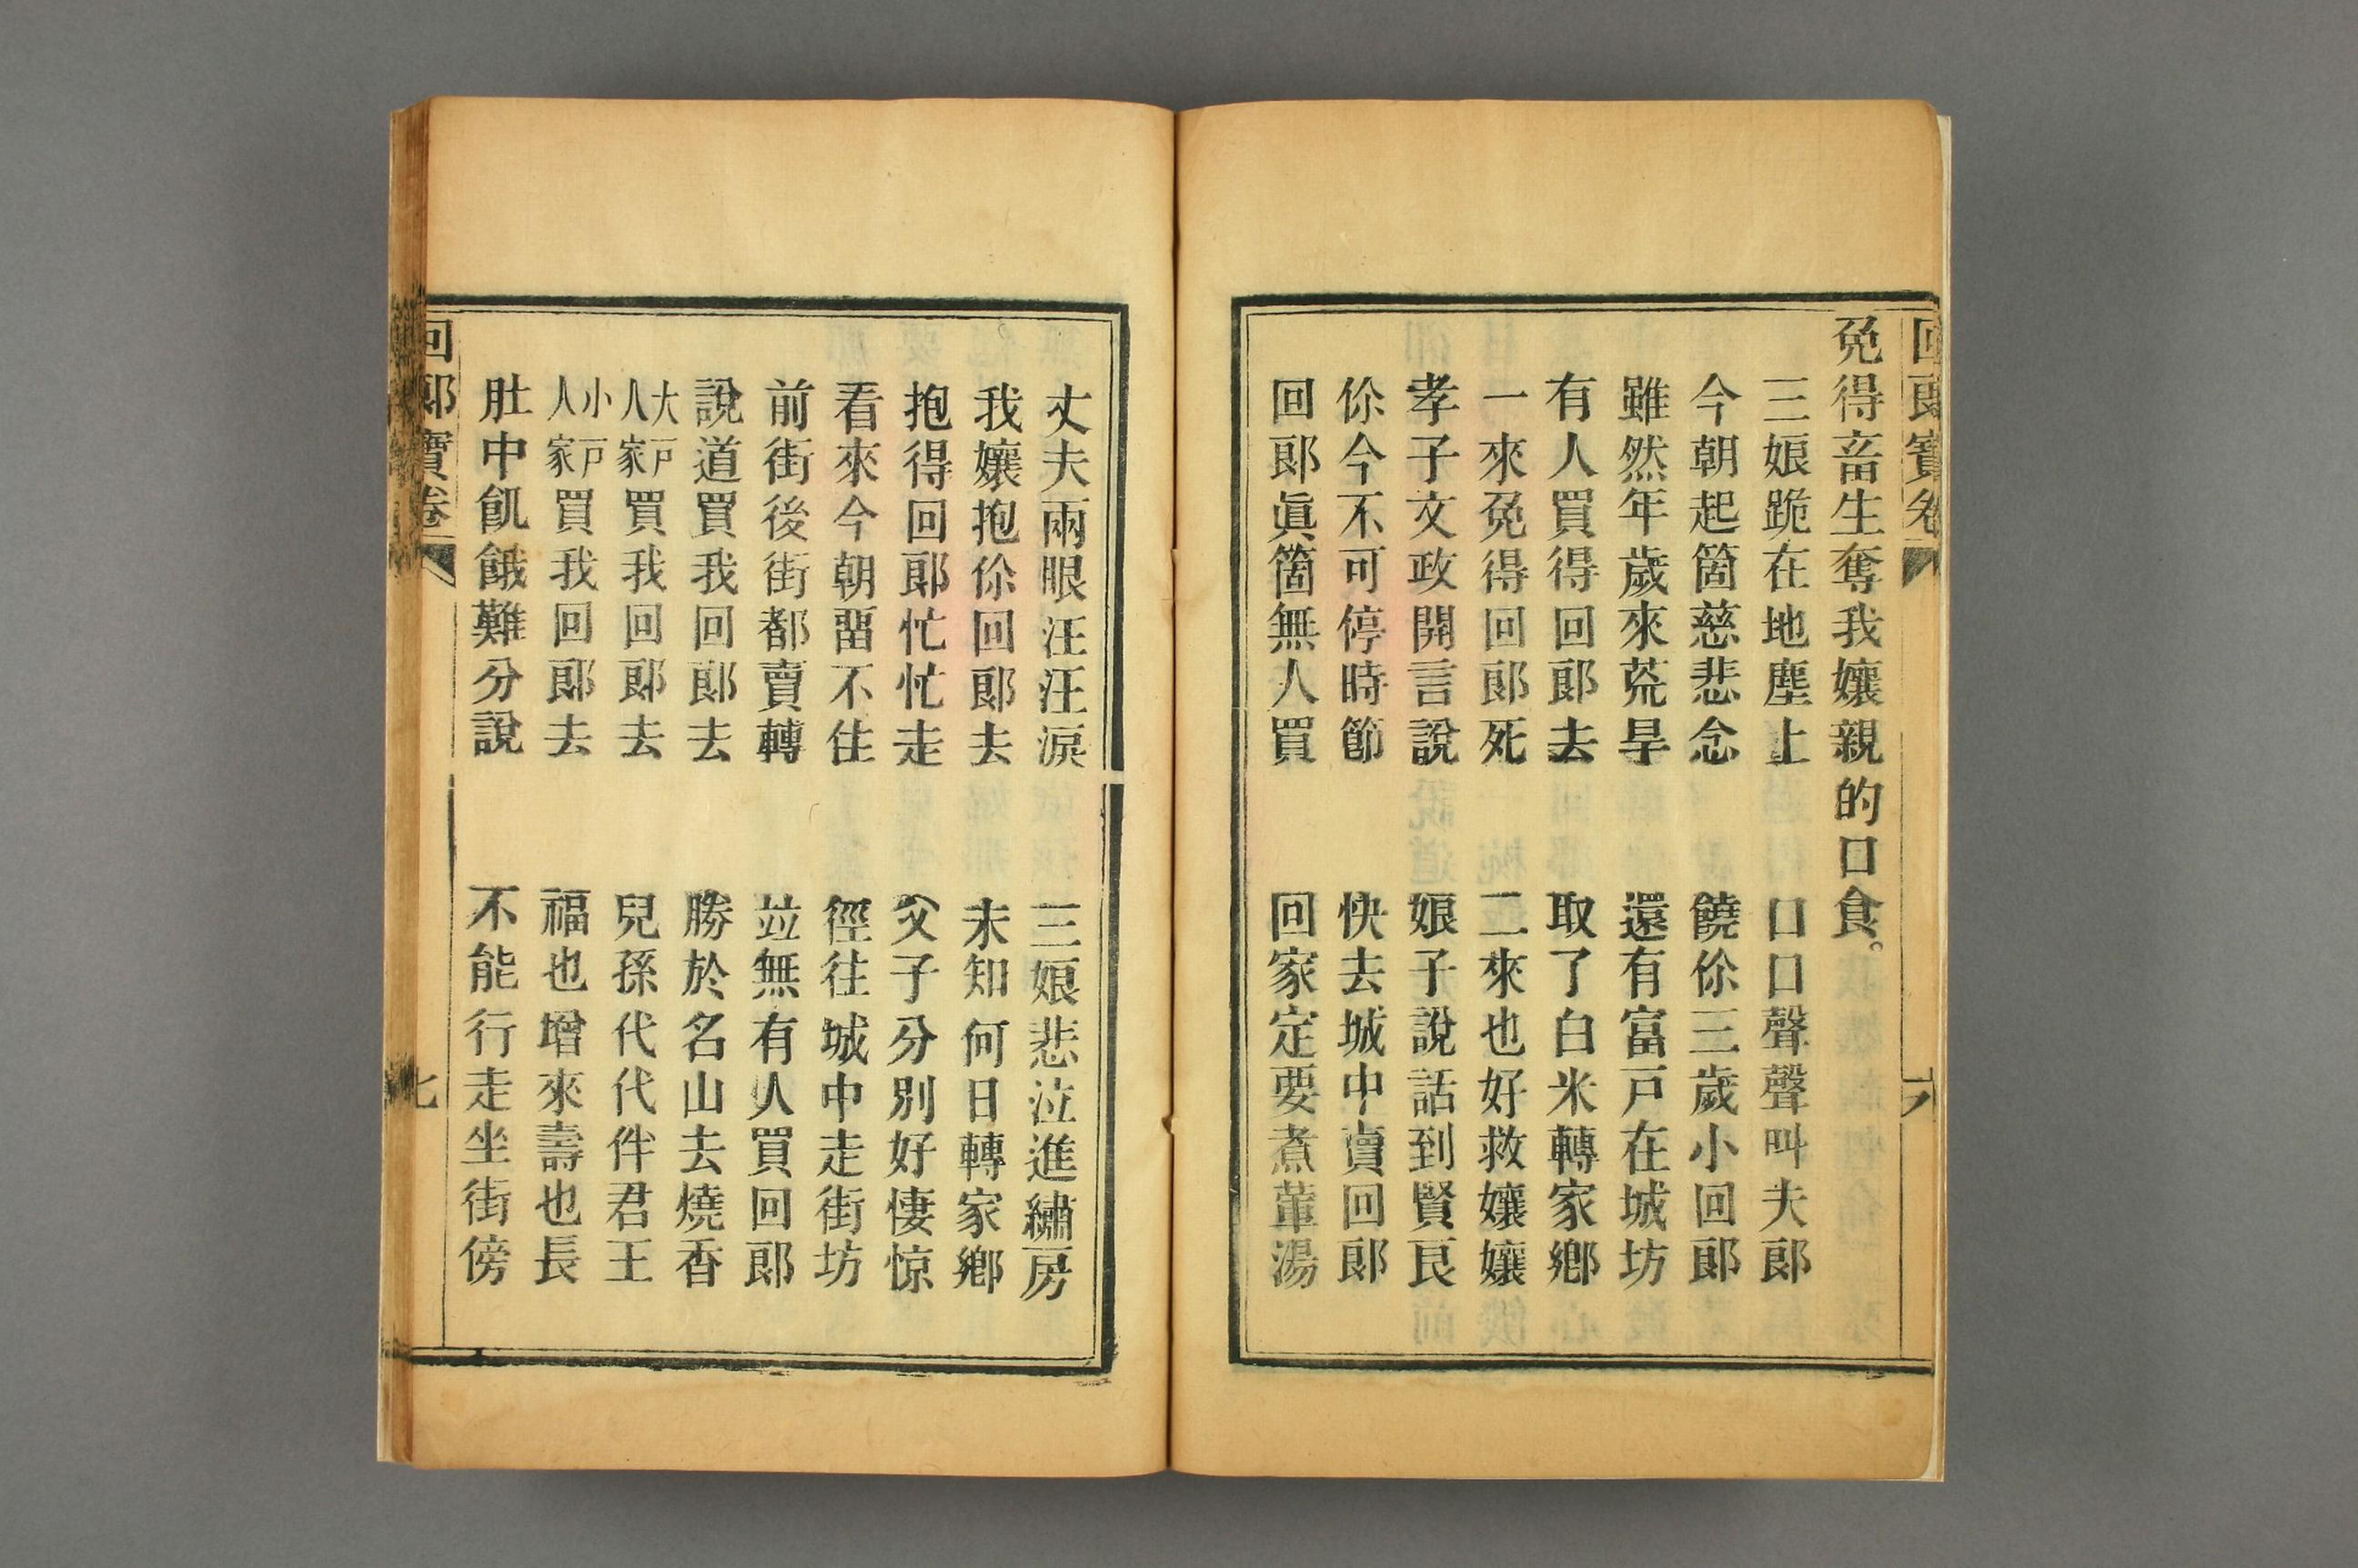 回郎寶卷 六
免得畜生奪我孃親的口食。
三娘跪在地塵上 口口聲聲叫夫郎
今朝起箇慈悲念 饒你三歲小回郎
雖然年歲來荒旱 還有富戸在城坊
有人買得回郎去 取了白米轉家鄉
一來免得回郎死 二來也好救孃孃
孝子文政開言說 娘子說話到賢良
你今不可停時節 快去城中賣回郎
回郎眞箇無人買 回家定要煮葷湯
丈夫兩眼汪汪淚 三娘悲泣進繡房
我孃抱你回郎去 未知何日轉家鄉
抱得回郎忙忙走 父子分別好悽惊
看來今朝畱不住 徑往城中走街坊
前街後街都賣轉 竝無有人買回郎
說道買我回郎去 勝於名山去燒香
大戸人家買我回郎去 兒孫代代伴君王
小戸人家買我回郎去 福也增來壽也長
肚中飢餓難分說 不能行走坐街傍
回郎寶卷 七